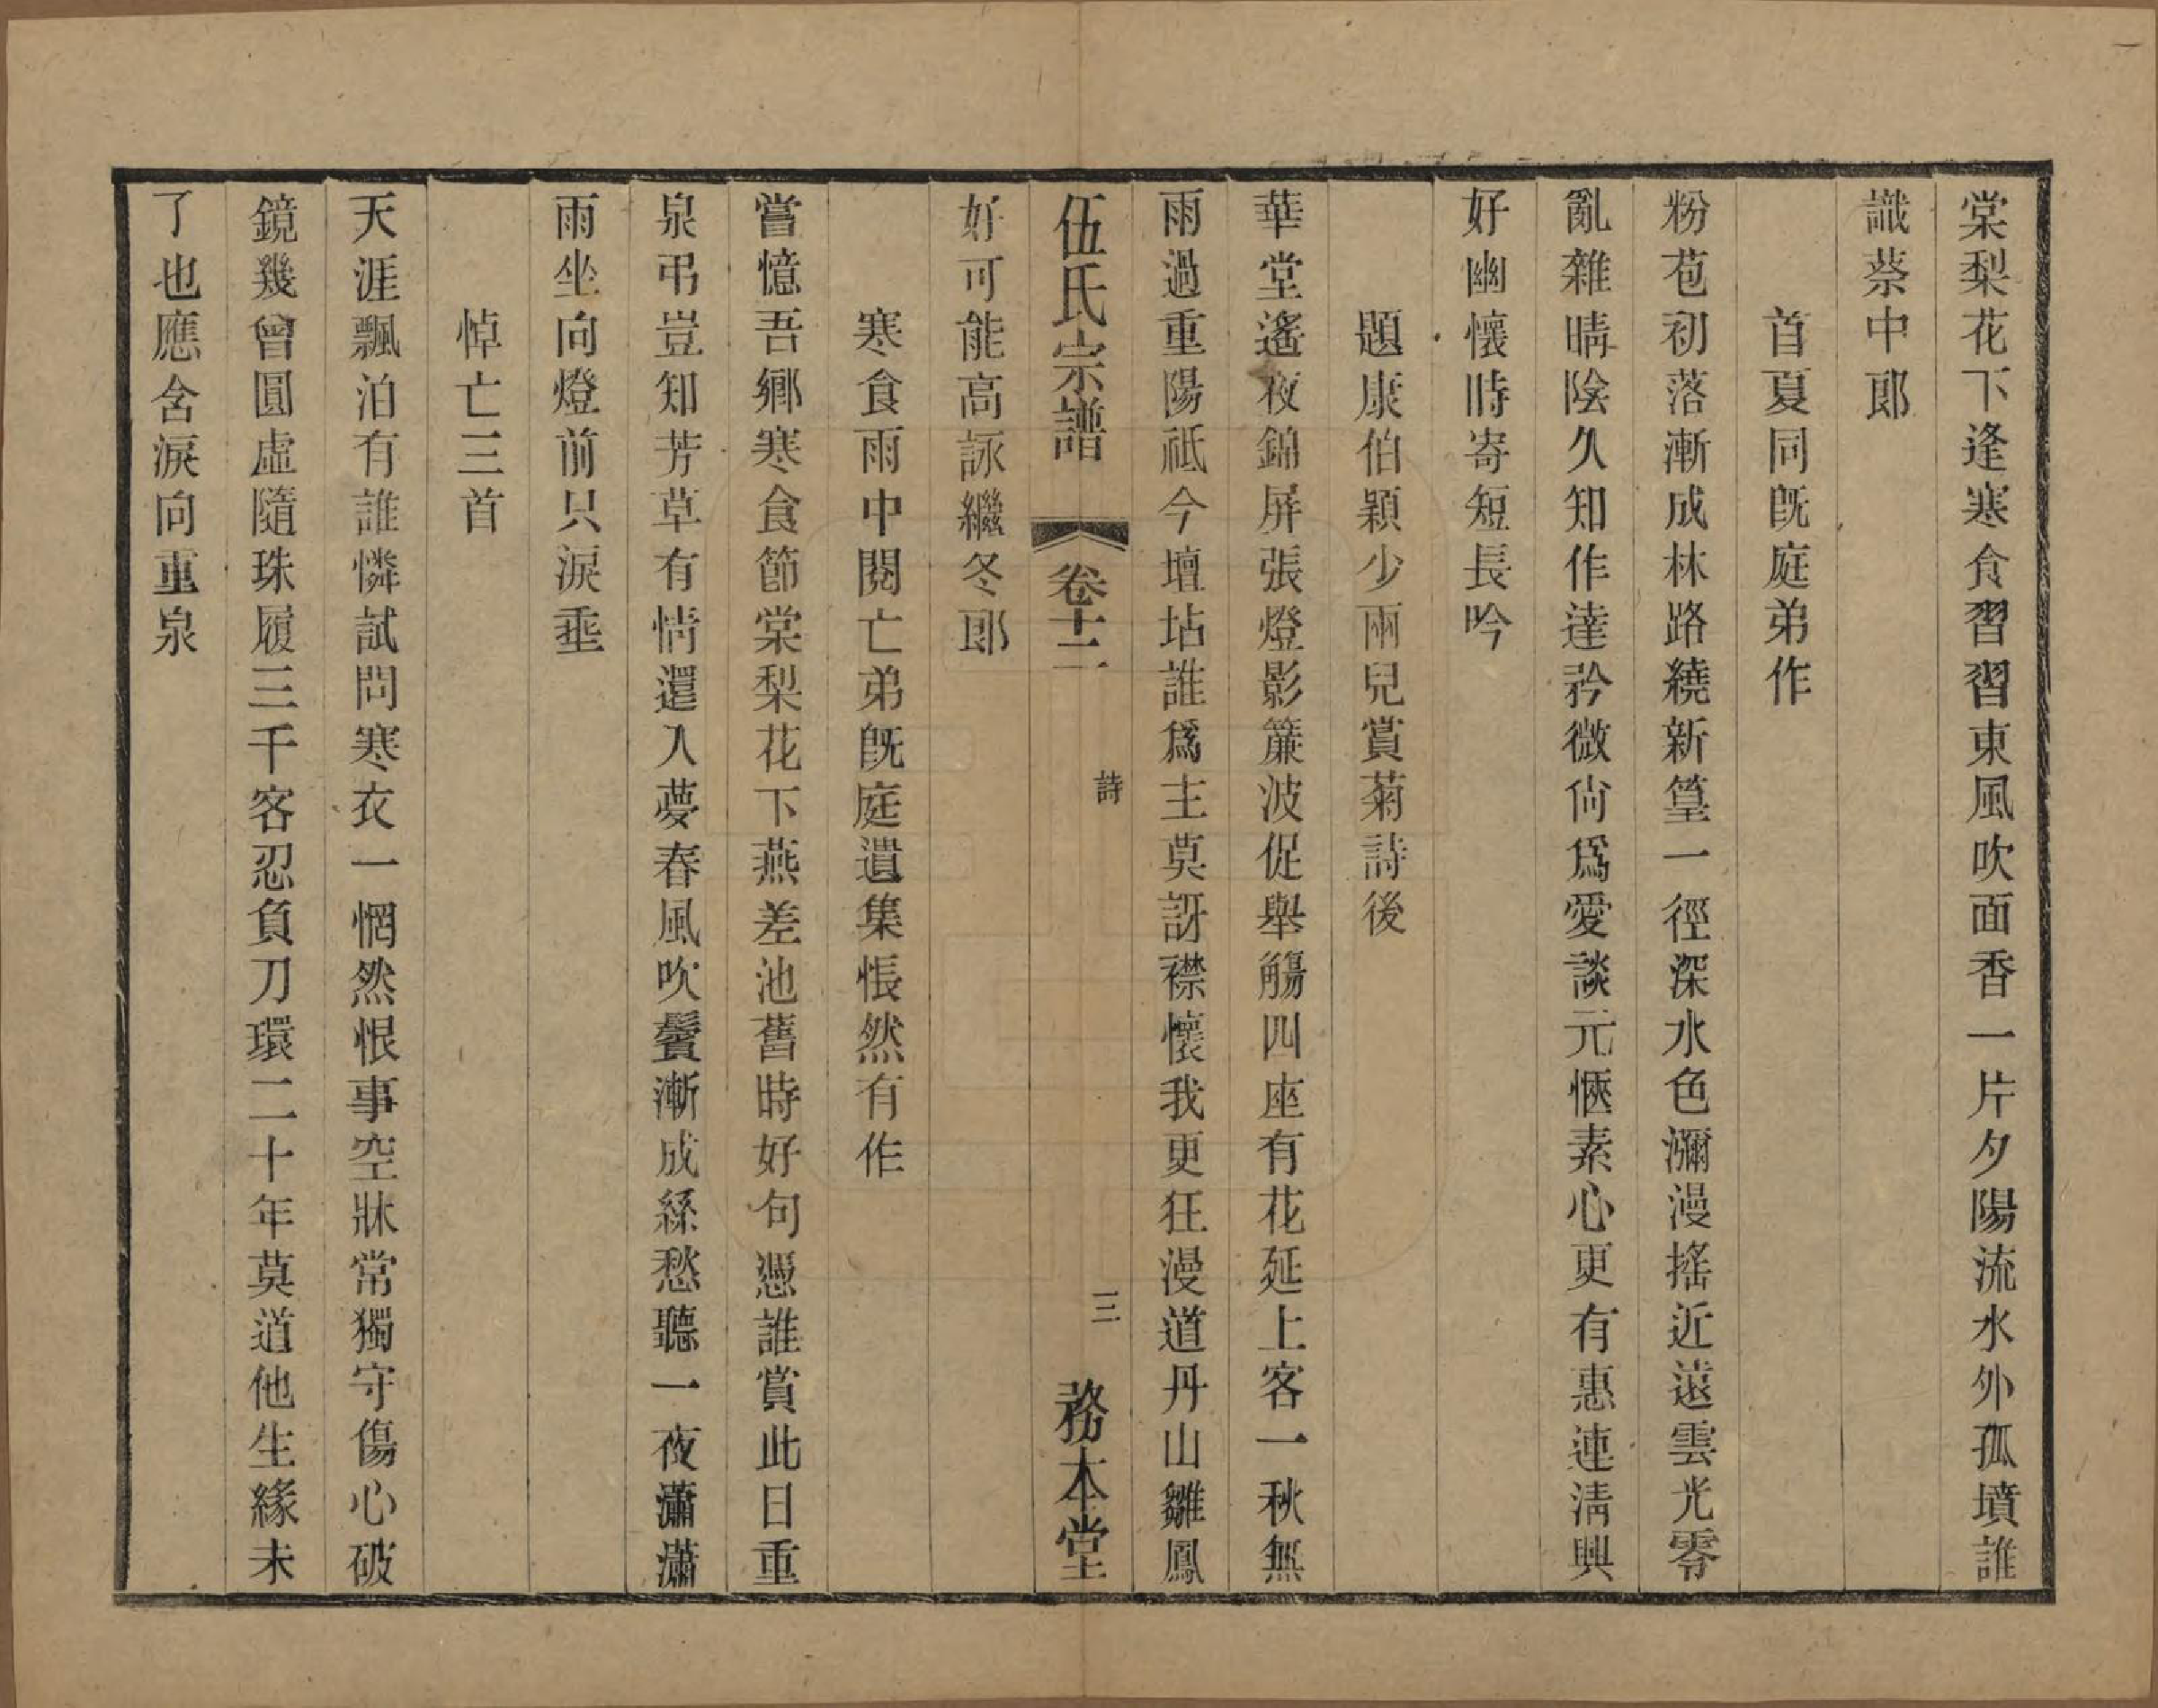 棠梨花下逢寒食習習東風吹面香一片夕陽流水外孤墳誰
識蔡中郎
首夏同旣庭弟作
粉苞初落漸成林路繞新篁一徑深水色瀰漫搖近遠雲光零
亂雜晴陰久知作達矜微尙爲愛談元愜素心更有惠連淸興
好幽懷時寄短長吟
題康伯穎少兩兒賞菊詩後
華堂遙夜錦屏張燈影簾波促舉觴四座有花延上客一秋無
雨過重陽祗今壇坫誰爲主莫訝襟懷我更狂漫道丹山雛鳳
伍氏宗譜 卷十二 詩 三 務本堂
好可能高詠繼冬郎
寒食雨中閱亡弟旣庭遺集悵然有作
嘗憶吾鄉寒食節棠梨花下燕差池舊時好句憑誰賞此日重
泉弔豈知芳草有情還入夢春風吹鬢漸成絲愁聽一夜瀟瀟
雨坐向燈前只淚垂
悼亡三首
天涯飄泊有誰憐試問寒衣一惘然恨事空牀常獨守傷心破
鏡幾曾圓虛隨珠履三千客忍負刀環二十年莫道他生緣未
了也應含淚向重泉